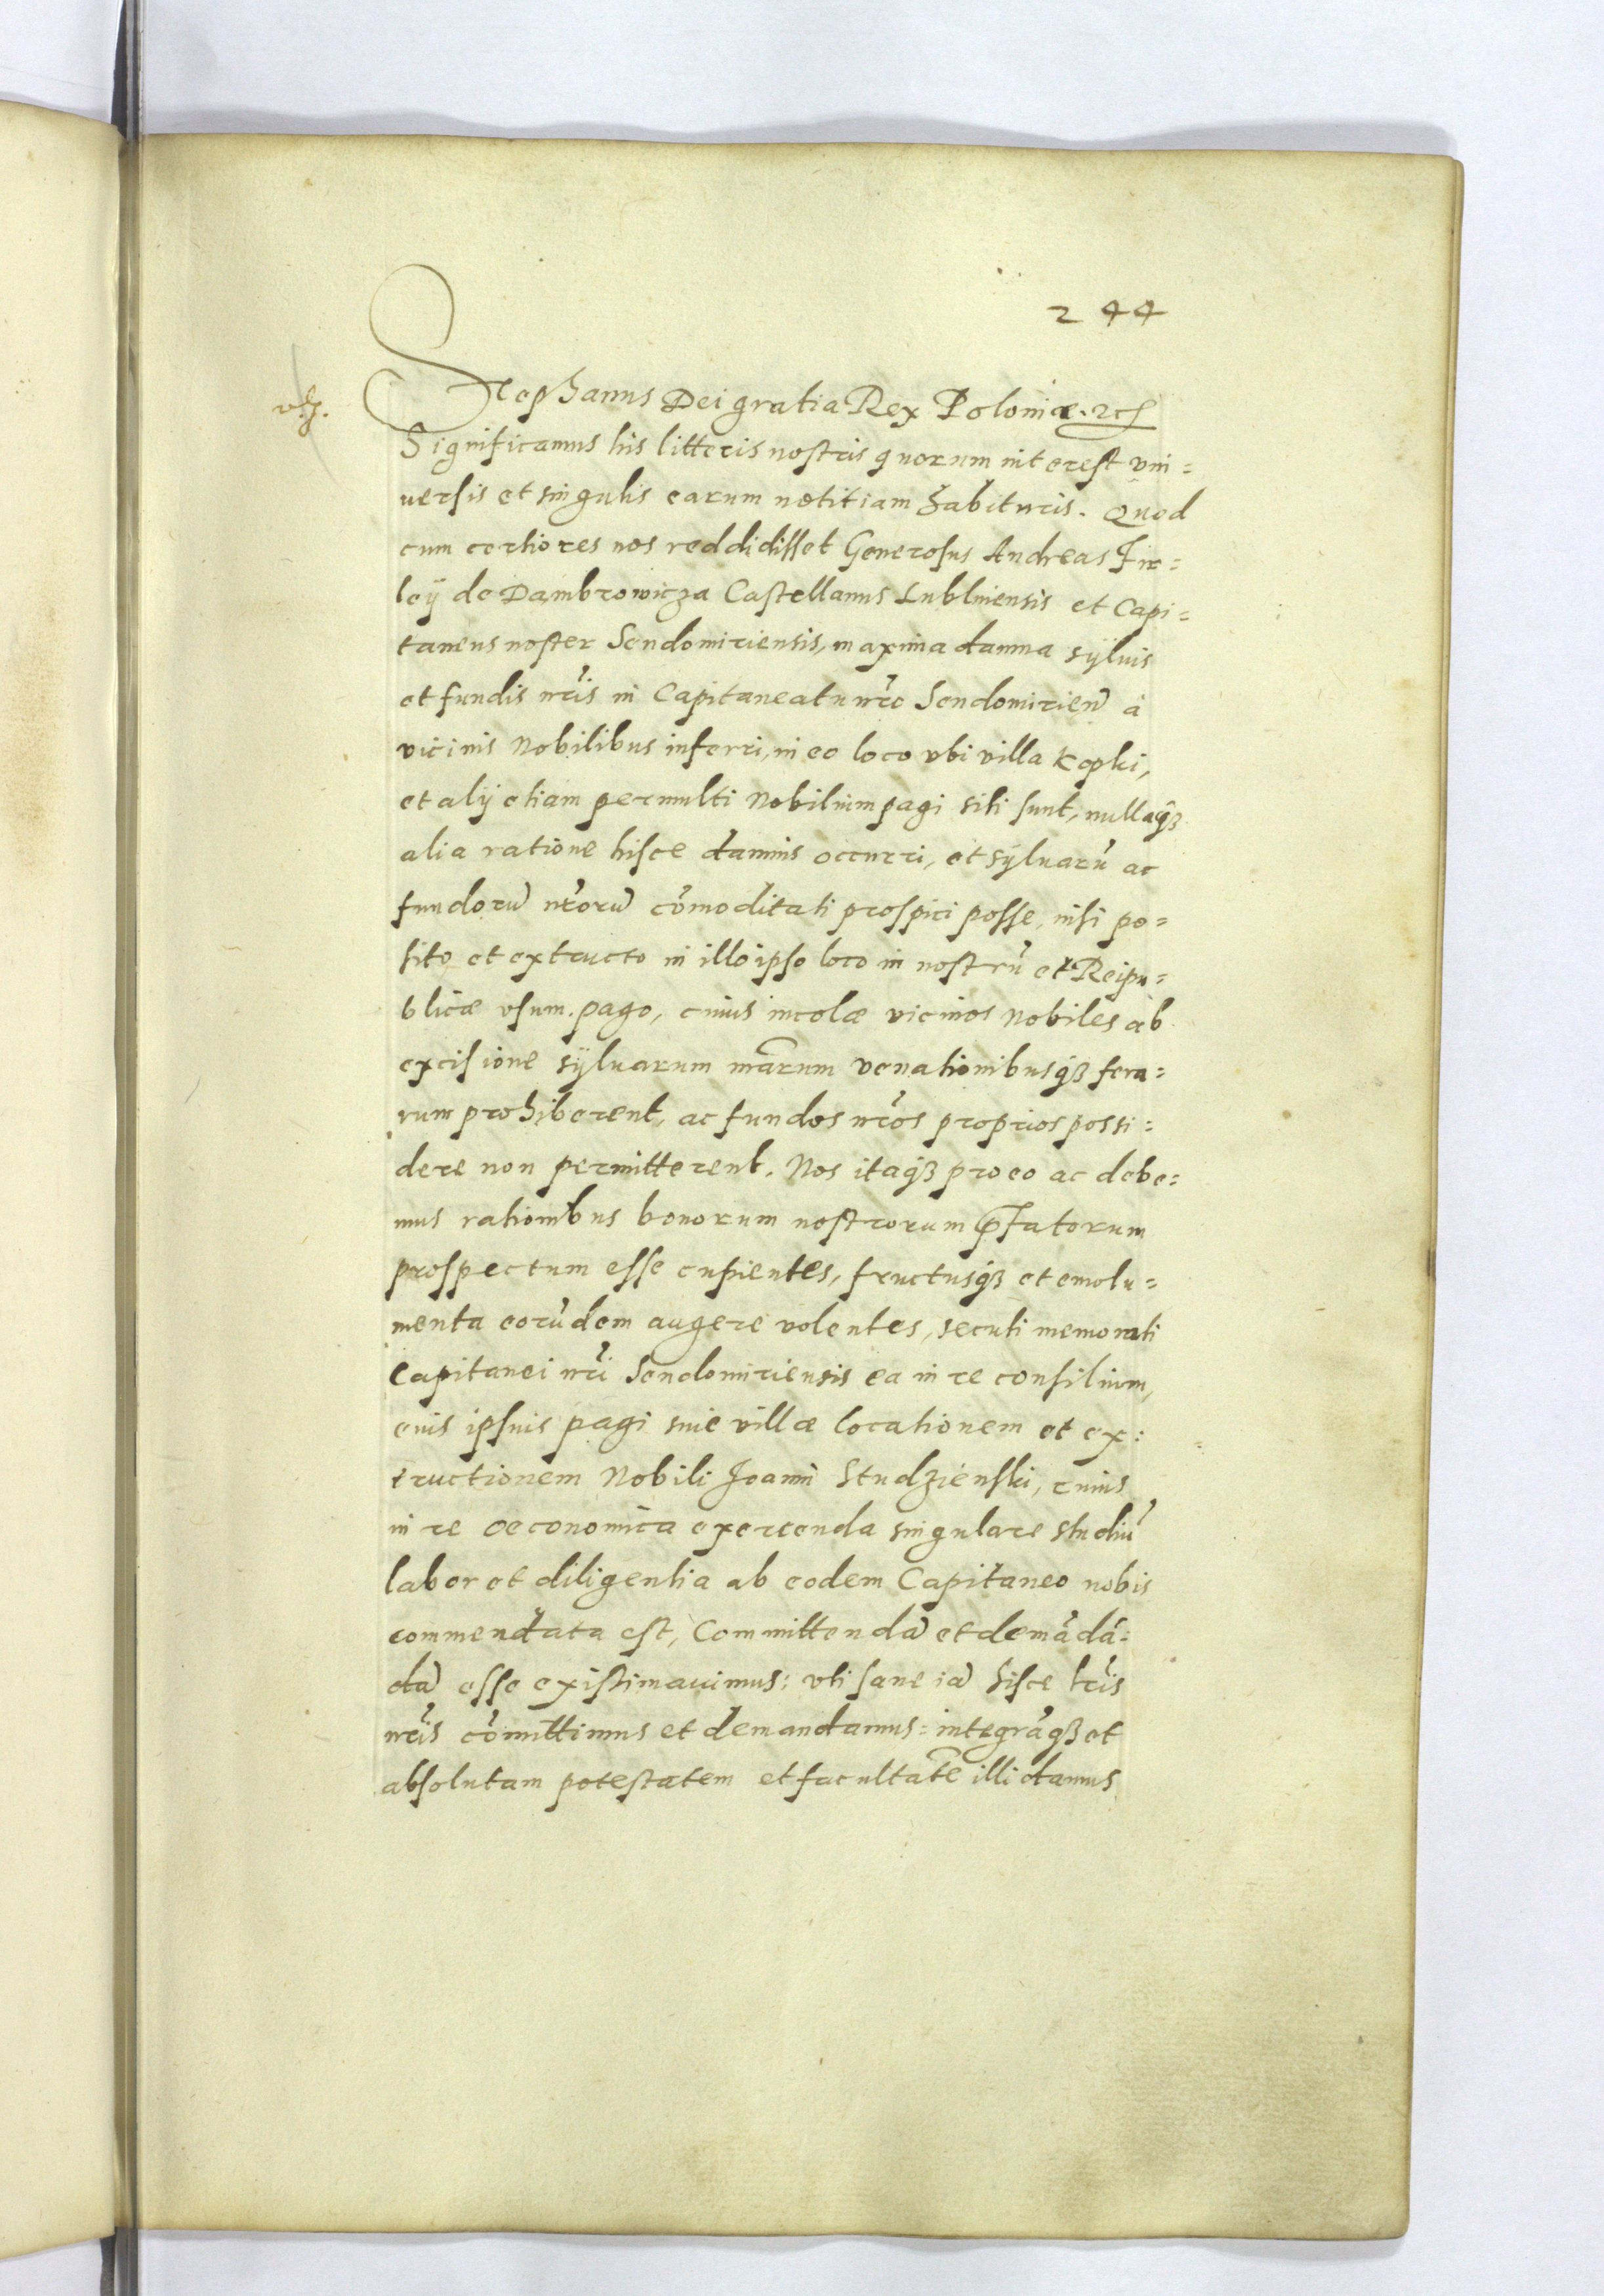 244
Stephanus Dei gratia Rex Poloniæ. etc
Significamus his litteris nostris quorum interest vni=
uersis et singulis earum notitiam habituris. Quod
cum certiores nos reddidisset Generosus Andreas Fir=
leÿ de Dambrowicza Castellanus Lublinensis et Capi=
taneus noster Sendomiriensis, maxima damna sÿluis
et fundis nr̃is in Capitaneatu nr̃o Sendomirien̄ à
vicinis Nobilibus inferri, in eo loco vbi villa Kopki,
et alij etiam permulti Nobilium pagi siti sunt, nullaq̃ȝ
alia ratione hisce damnis occurri, et sÿluarū ac
fundorū nr̃orū cōmoditati prospici posse, nisi po=
sito et extructo in illo ipso loco in nostrū et Reipu=
blicæ vsum. pago, cuius incolæ vicinos Nobiles ab
excisione sÿluarum nr̃arum venationibusq̃ȝ fera=
rum prohiberent, ac fundos nr̃os proprios possi=
dere non permitterent. Nos itaq̃ȝ pro eo ac debe=
mus rationibus bonorum nostrorum p̄fatorum
prospectum esse cupientes, fructusq̃ȝ et emolu=
menta eorūdem augere volentes, secuti memorati
Capitanei nr̃i Sendomiriensis ea in re consilium,
eius ipsius pagi siue villæ locationem et ex=
tructionem Nobili Joanni Studzienski, cuius
in re oeconomica exercenda singulare studiū
labor et diligentia ab eodem Capitaneo nobis
commendata est, Committendā et demādā=
dā esse existimauimus: vti sane iā hisce lr̃is
nr̃is cōmittimus et demandamus: integrāq̃ȝ et
absolutam potestatem et facultatē illi damus